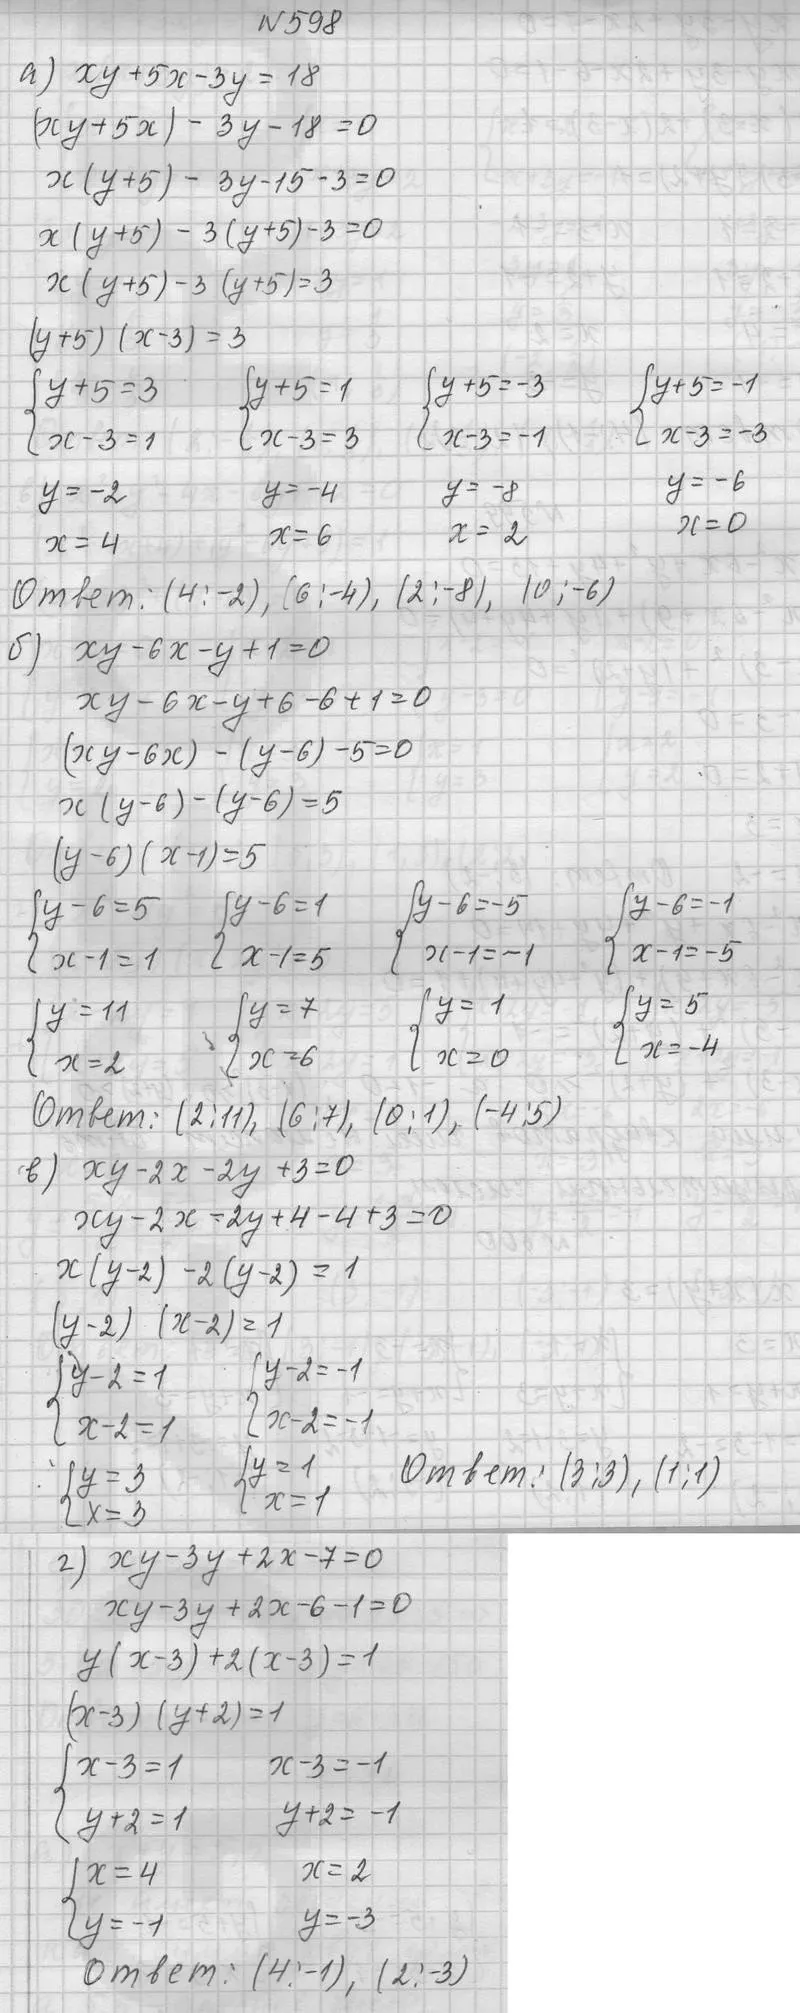 N598
а) xy+5x-3y=18
(xy+5x)-3y-18=0
x(y+5)-3y-15-3=0
x(y+5)-3(y+5)-3=0
x(y+5)-3(y+5)=3
(y+5)(x-3)=3
{y+5=3 {y+5=1 {y+5=-3 {y+5=-1
x-3=1 x-3=3 x-3=-1 x-3=-3
y=-2 y=-4 y=-8 y=-6
x=4 x=6 x=2 x=0
Ответ: (4;-2), (6;-4), (2;-8), (0;-6)
б) xy-6x-y+1=0
xy-6x-y+6-6+1=0
(xy-6x)-(y-6)-5=0
x(y-6)-(y-6)=5
(y-6)(x-1)=5
{y-6=5 {y-6=1 {y-6=-5 {y-6=-1
x-1=1 x-1=5 x-1=-1 x-1=-5
{y=11 {y=7 {y=1 {y=5
x=2 x=6 x=0 x=-4
Ответ: (2;11), (6;7), (0;1), (-4;5)
в) xy-2x-2y+3=0
xy-2x-2y+4-4+3=0
x(y-2)-2(y-2)=1
(y-2)(x-2)=1
{y-2=1 {y-2=-1
x-2=1 x-2=-1
{y=3 {y=1 Ответ: (3;3), (1;1)
x=3 x=1
г) xy-3y+2x-7=0
xy-3y+2x-6-1=0
y(x-3)+2(x-3)=1
(x-3)(y+2)=1
{x-3=1 x-3=-1
y+2=1 y+2=-1
{x=4 x=2
y=-1 y=-3
Ответ: (4;-1), (2;-3)